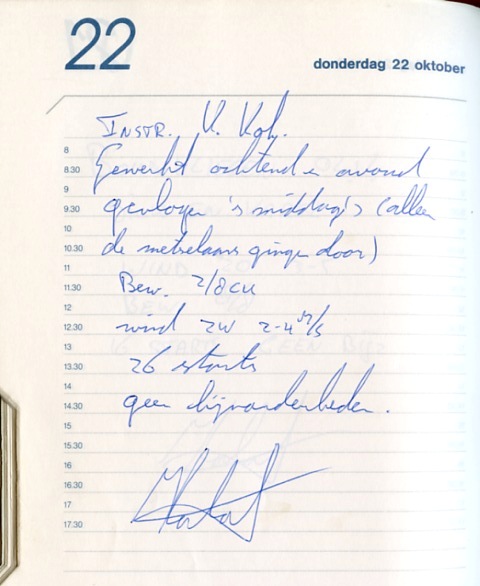 22
donderdag 22 oktober
INSTR. K. Kok.
8
8.30 Gewerkt ochtend en avond
9
9.30 gevlogen 's middags (alleen
10
10.30 de metselaars gingen door)
11
11.30 Bew. 2/8 CU
12
12.30 wind ZW 2-4 M/s
13
13.30 26 starts
14
14.30 geen bijzonderheden.
15
15.30
16
16.30
17
17.30